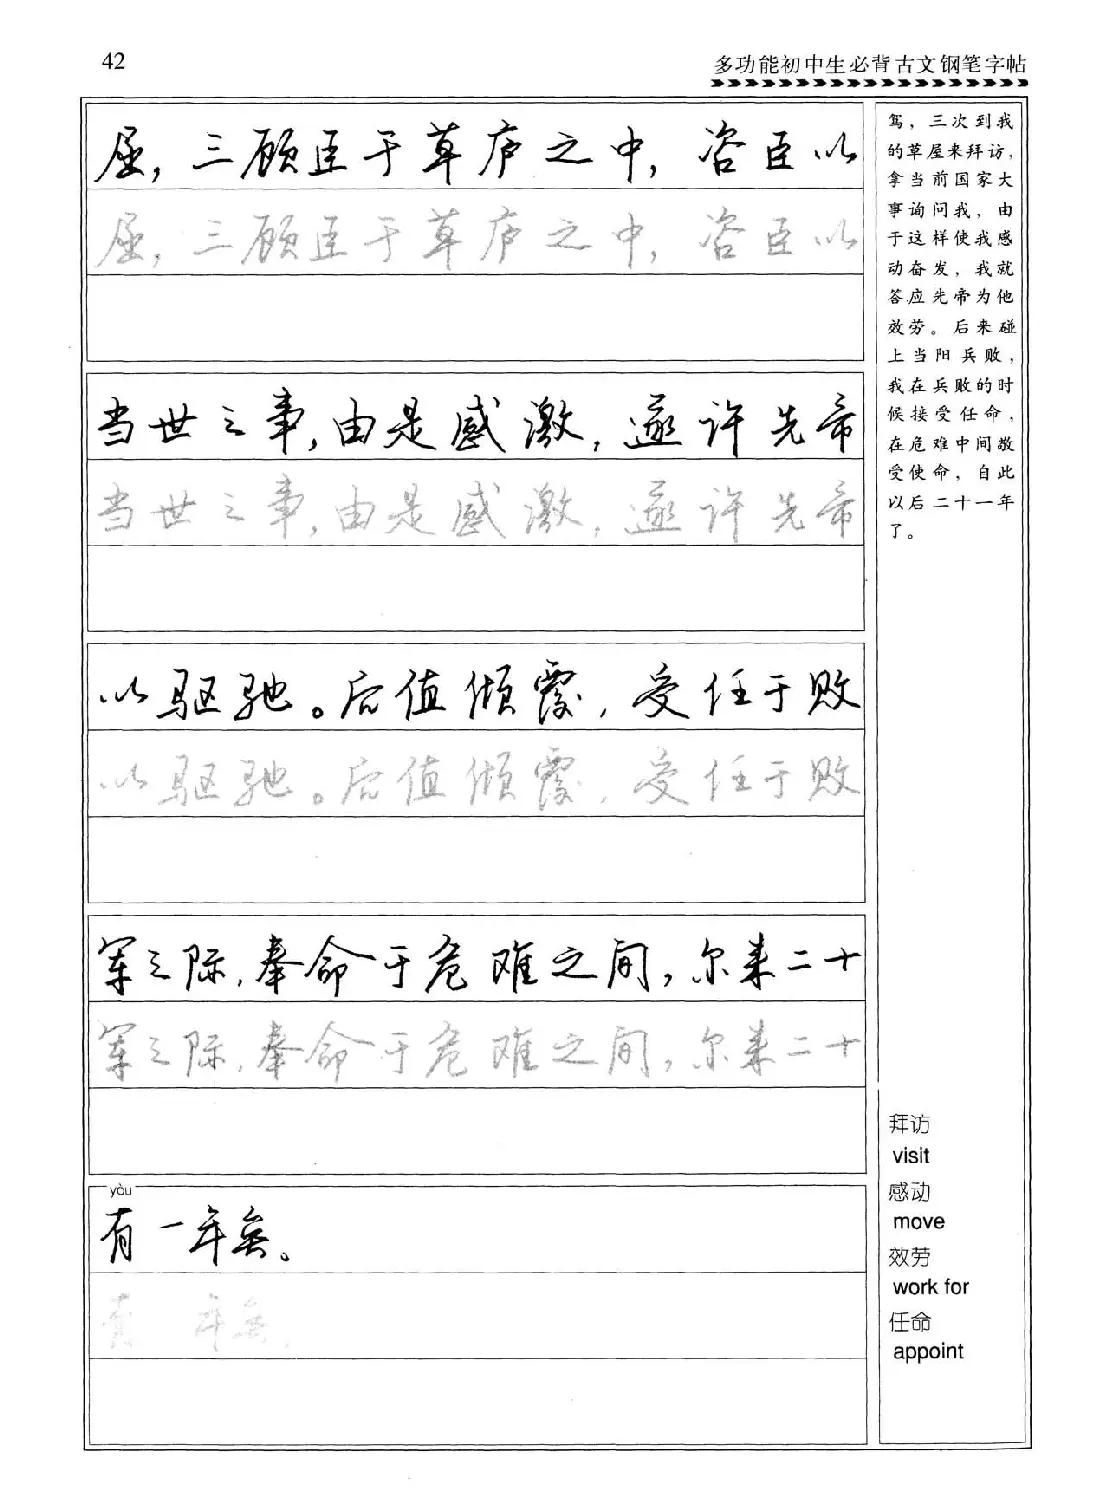 42
多功能初中生必背古文钢笔字帖
屈，三顾臣于草庐之中，咨臣以
屈，三顾臣于草庐之中，咨臣以
当世之事，由是感激，遂许先帝
当世之事，由是感激，遂许先帝
以驱驰。后值倾覆，受任于败
以驱驰。后值倾覆，受任于败
军之际，奉命于危难之间，尔来二十
军之际，奉命于危难之间，尔来二十
yòu
有一年矣。
有一年矣。
驾，三次到我
的草屋来拜访，
拿当前国家大
事询问我，由
于这样使我感
动奋发，我就
答应先帝为他
效劳。后来碰
上当阳兵败，
我在兵败的时
候接受任命，
在危难中间敬
受使命，自此
以后二十一年
了。
拜访
visit
感动
move
效劳
work for
任命
appoint